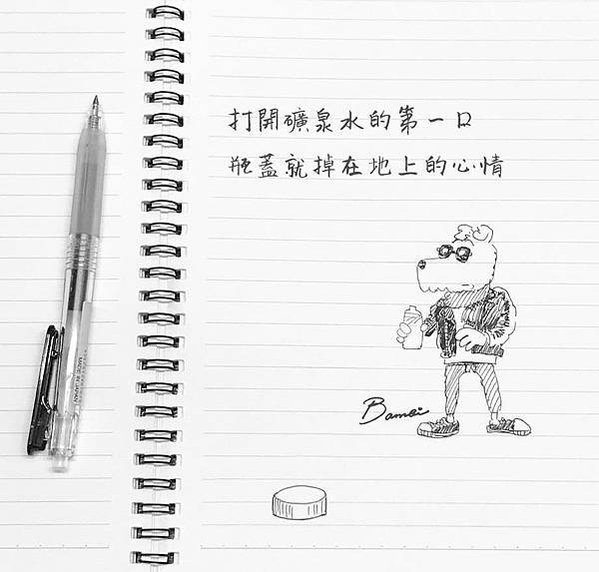 打開礦泉水的第一口
瓶蓋就掉在地上的心情
Bamei
MADE IN JAPAN